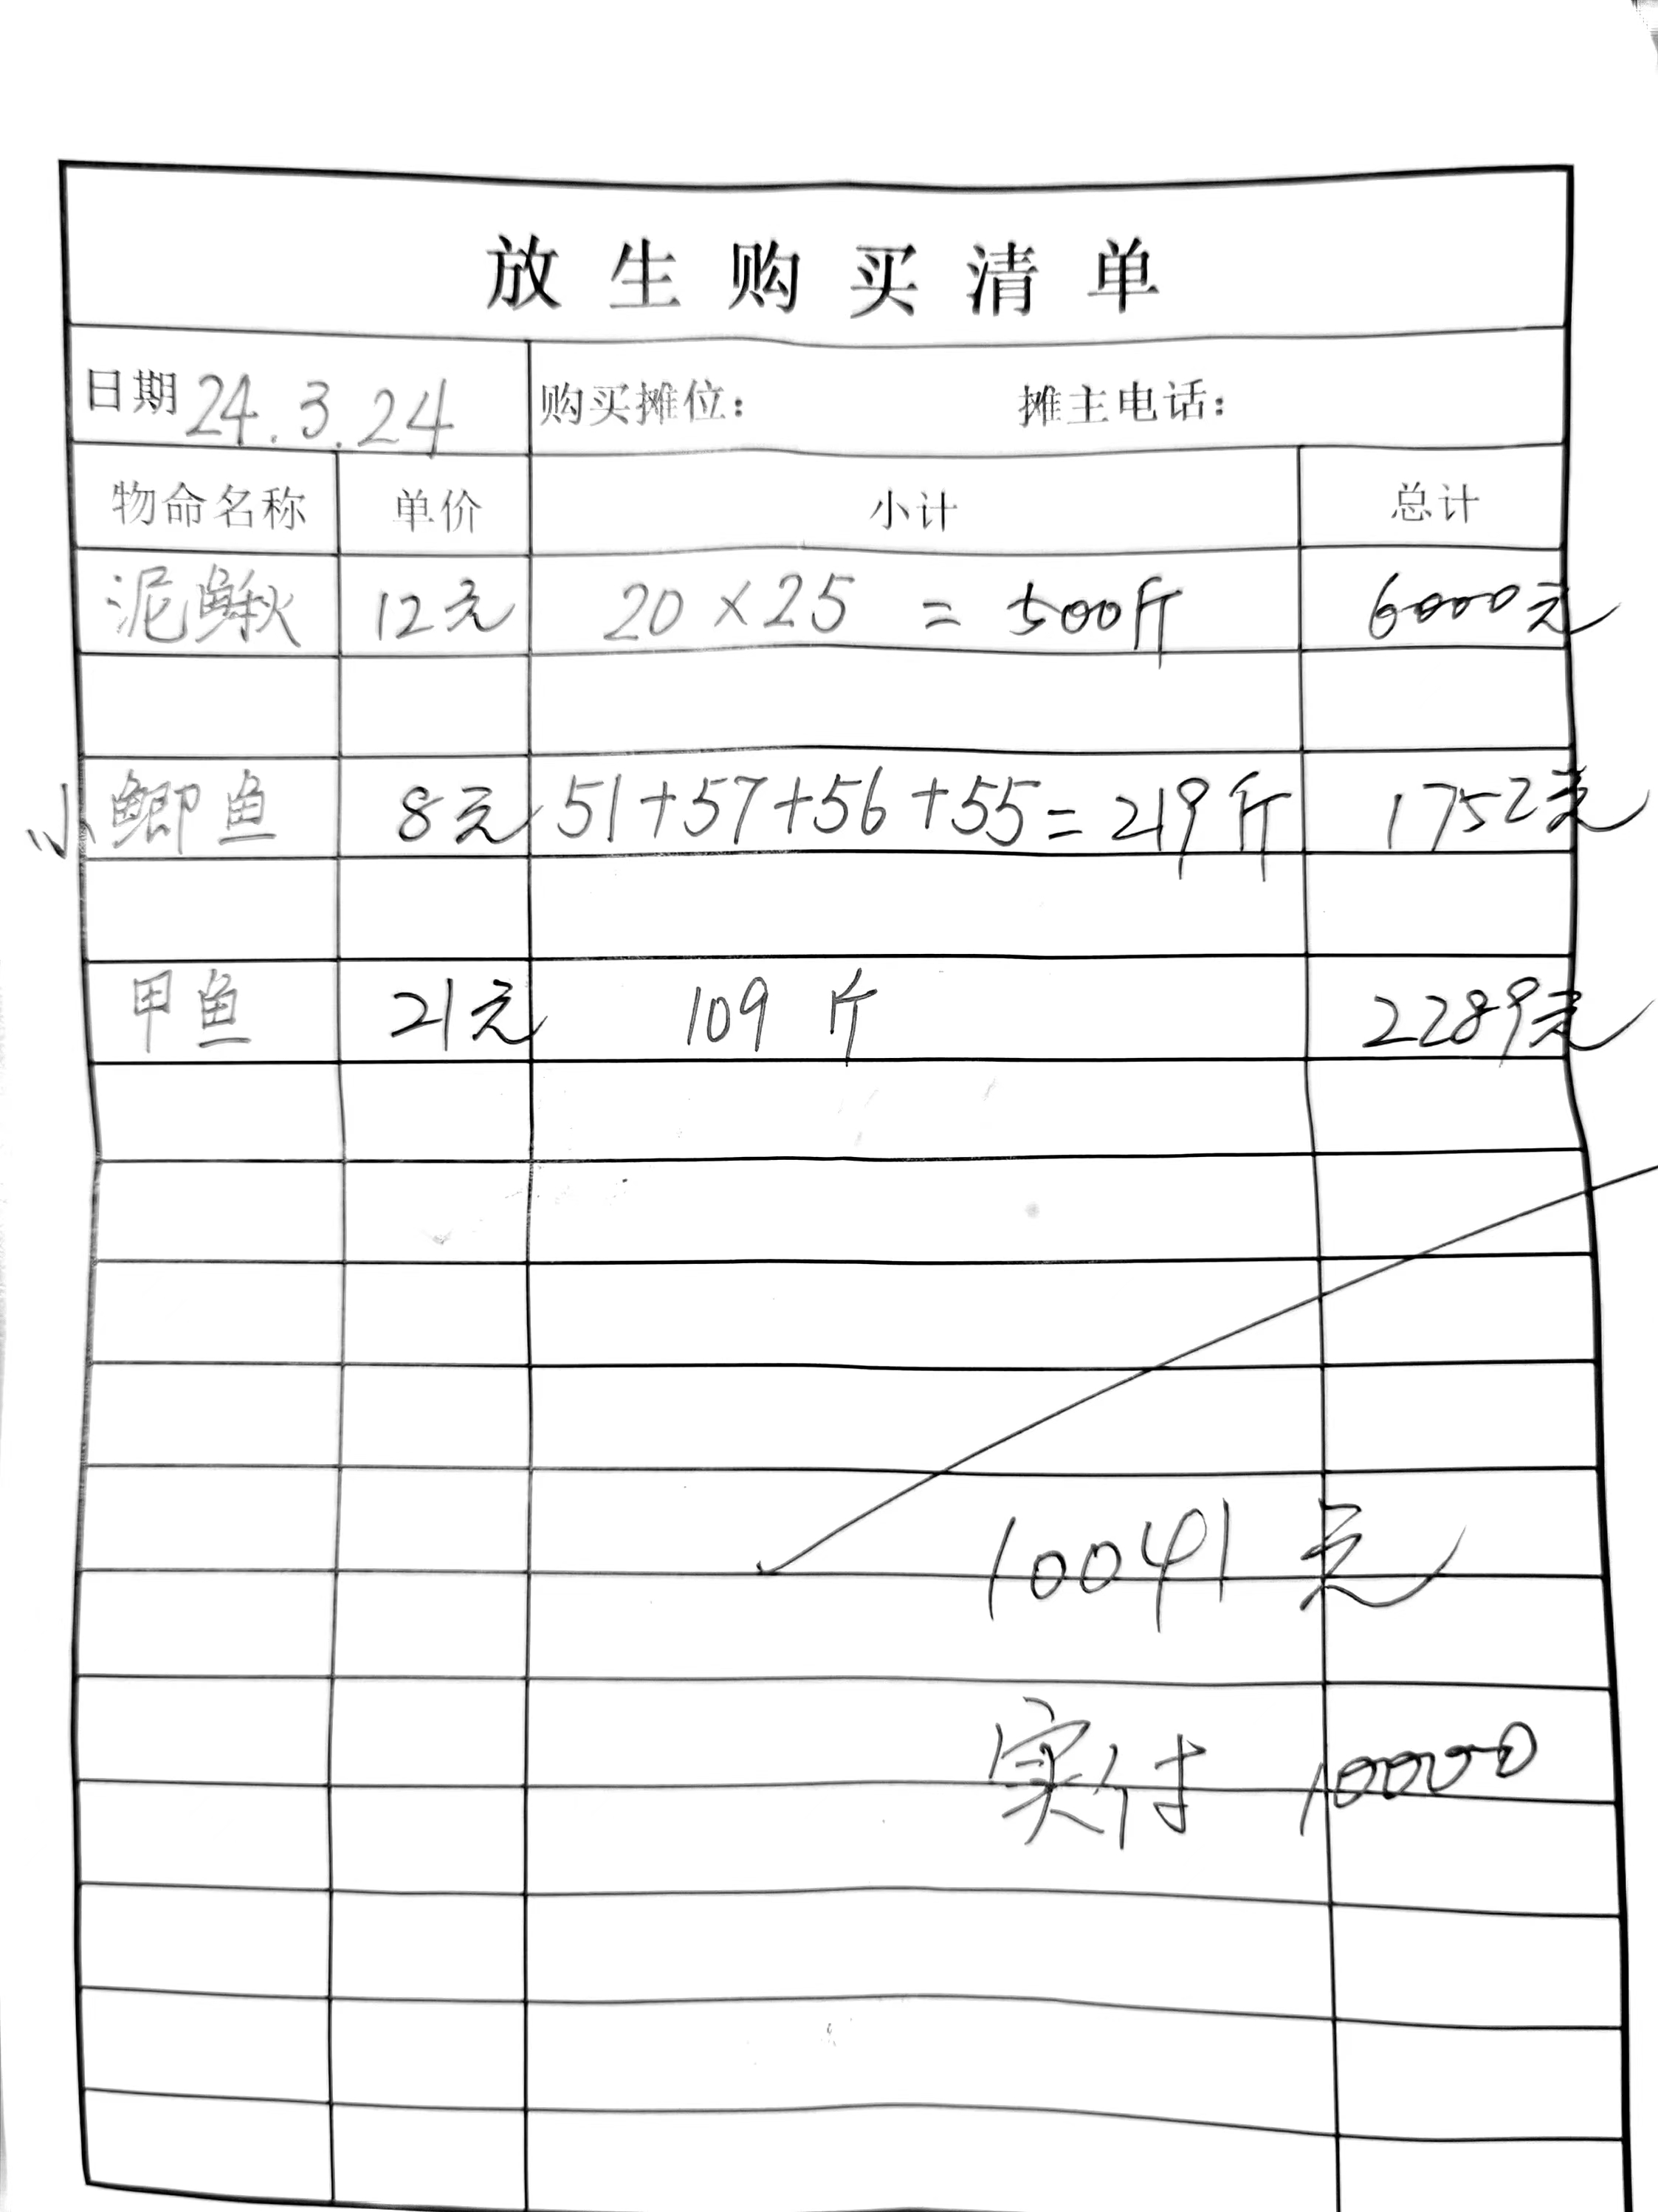 放生购买清单
日期 24.3.24 购买摊位： 摊主电话：
物命名称 单价 小计 总计
泥鳅 12元 20×25 = 500斤 6000元
小鲫鱼 8元 51+57+56+55=219斤 1752元
甲鱼 21元 109斤 2289元
10041元
实付 10000